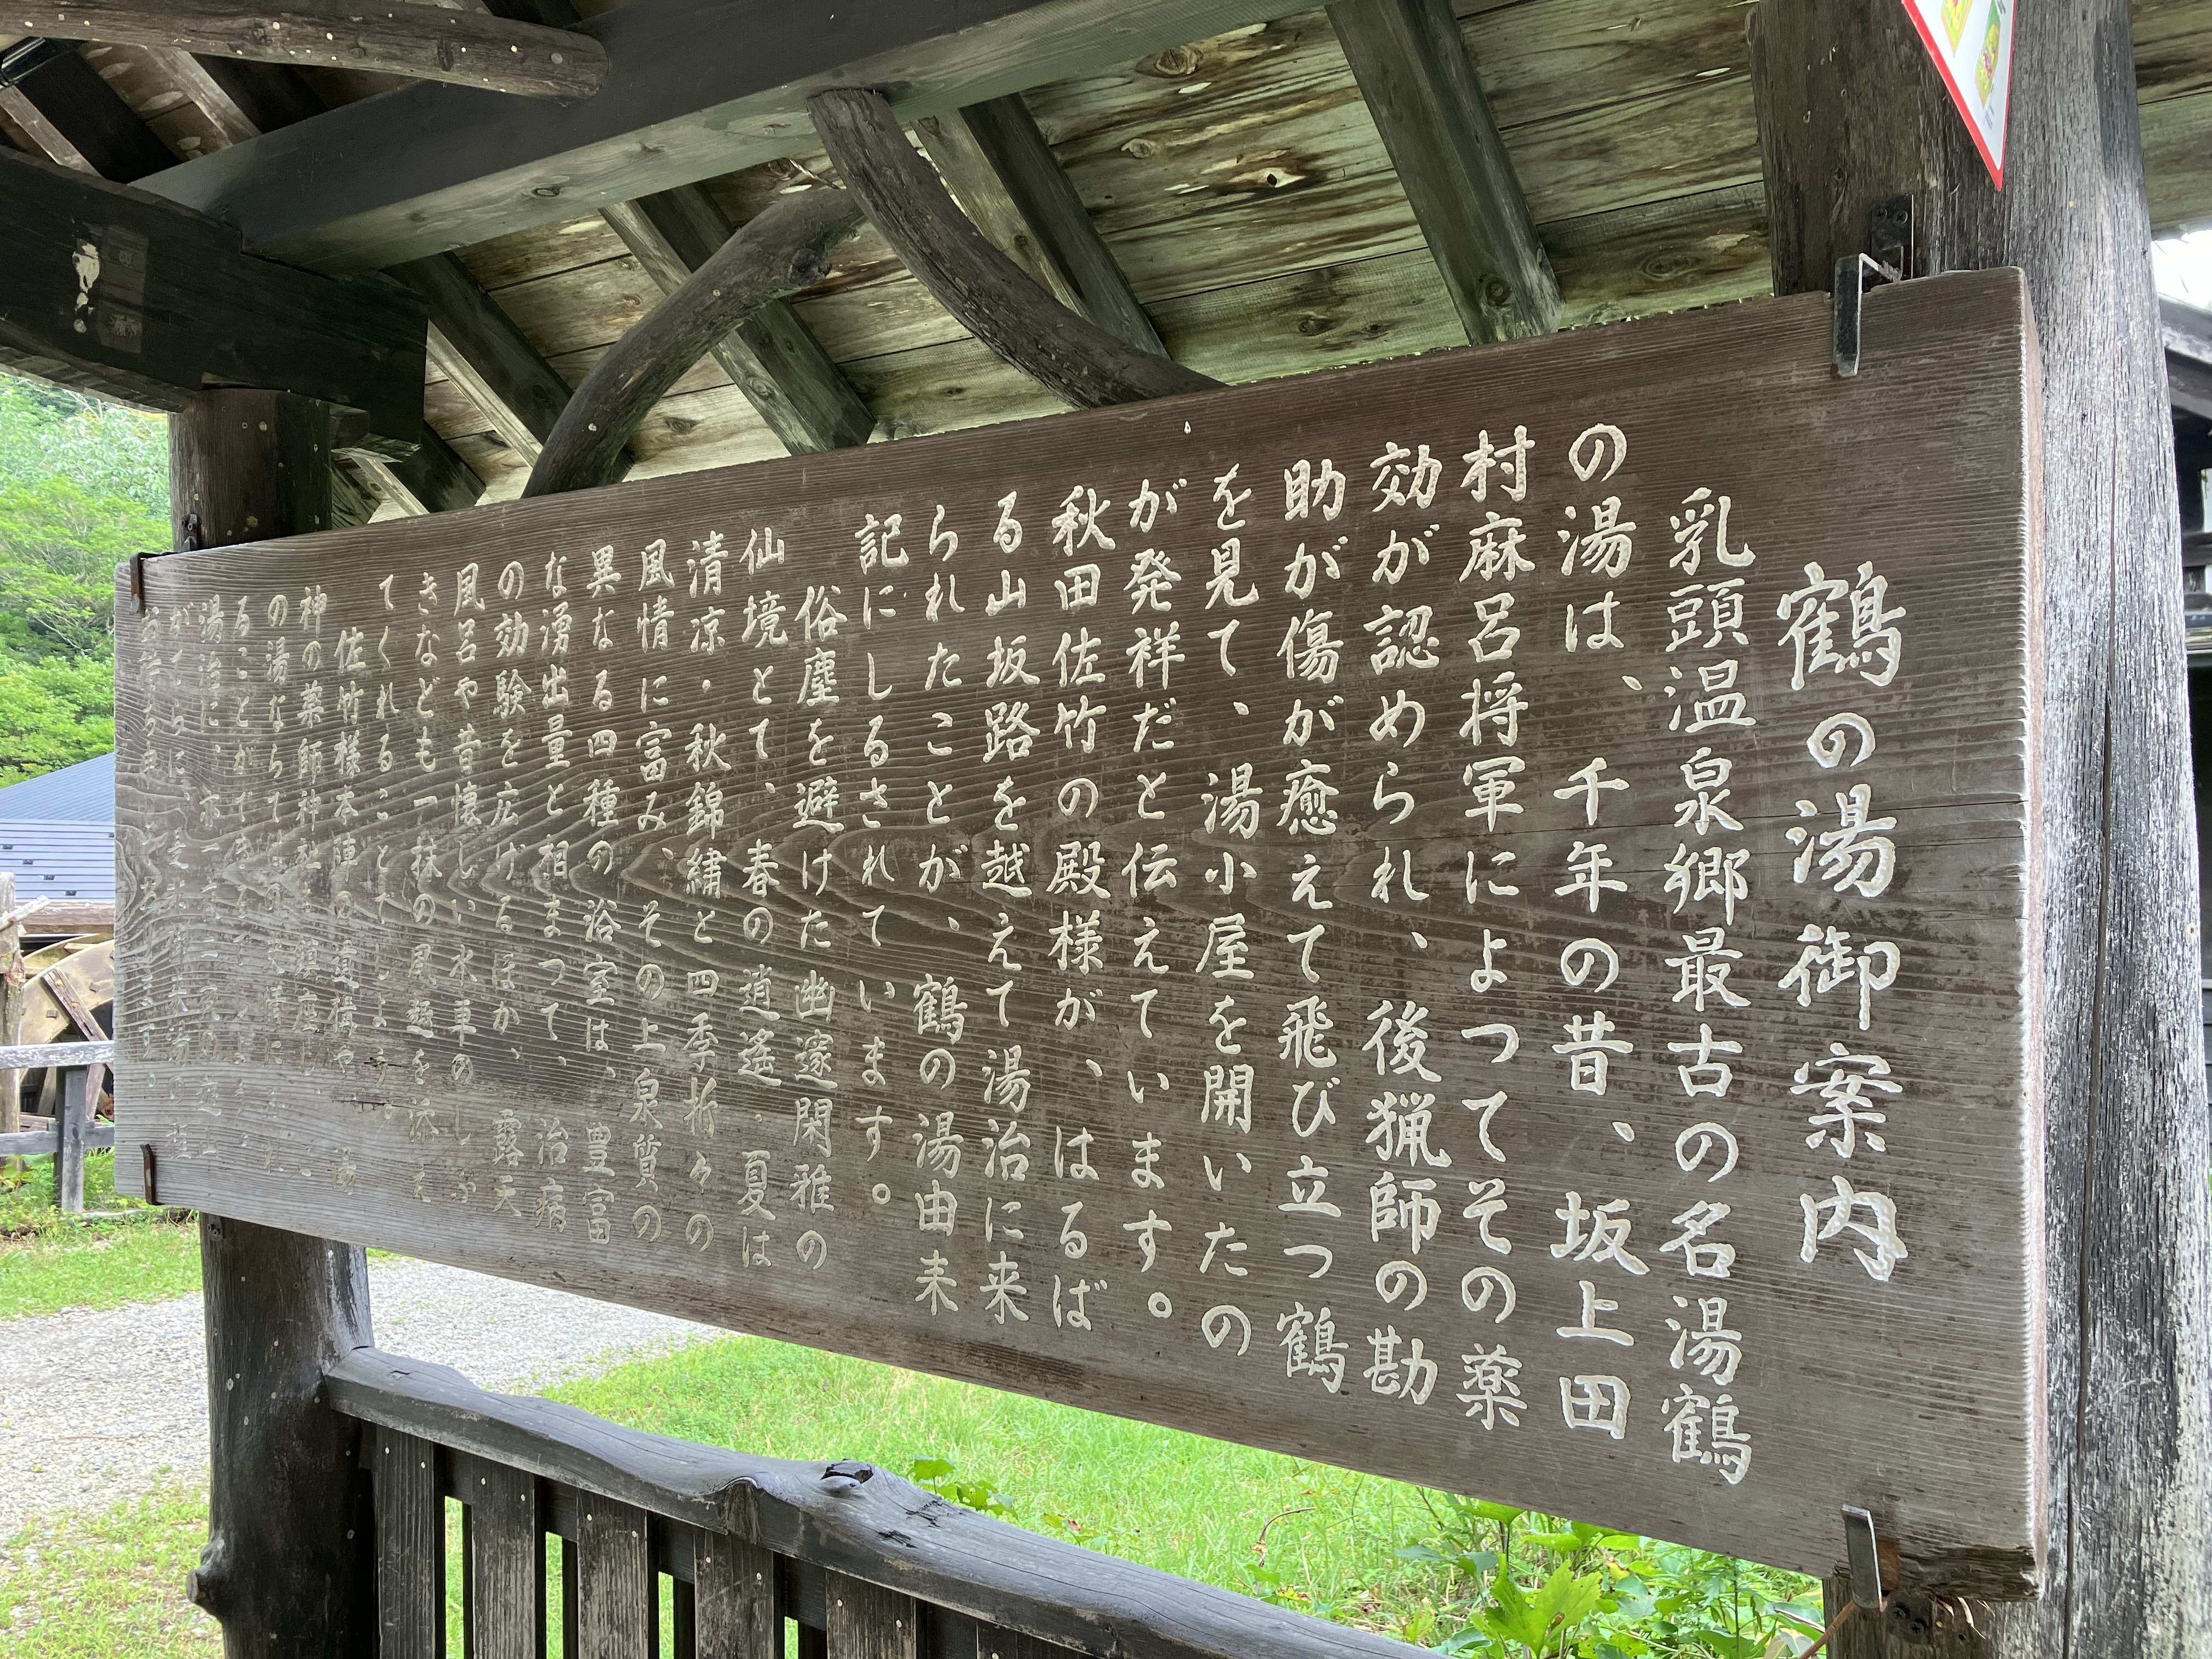 鶴の湯御案内
乳頭温泉郷最古の名湯鶴
の湯は、千年の昔、坂上田
村麻呂将軍によってその薬
効が認められ、後猟師の勘
助が傷が癒えて飛び立つ鶴
を見て、湯小屋を開いたの
が発祥だと伝えています。
秋田佐竹の殿様が、はるば
る山坂路を越えて湯治に来
られたことが、鶴の湯由来
記にしるされています。
俗塵を避けた幽邃閑雅の
仙境とて、春の逍遙、夏は
清凉・秋錦繍と四季折々の
風情に富み、その上泉質の
異なる四種の浴室は、豊富
な湧出量と相まって、治病
の効験を広げるほか、露天
風呂や昔懐しい水車のしぶ
きなども一抹の風趣を添え
てくれることでしょう。
佐竹様本陣の遺構や、湯
神の薬師神社も鎮座し
の湯ならではの
ることができ
湯治に、